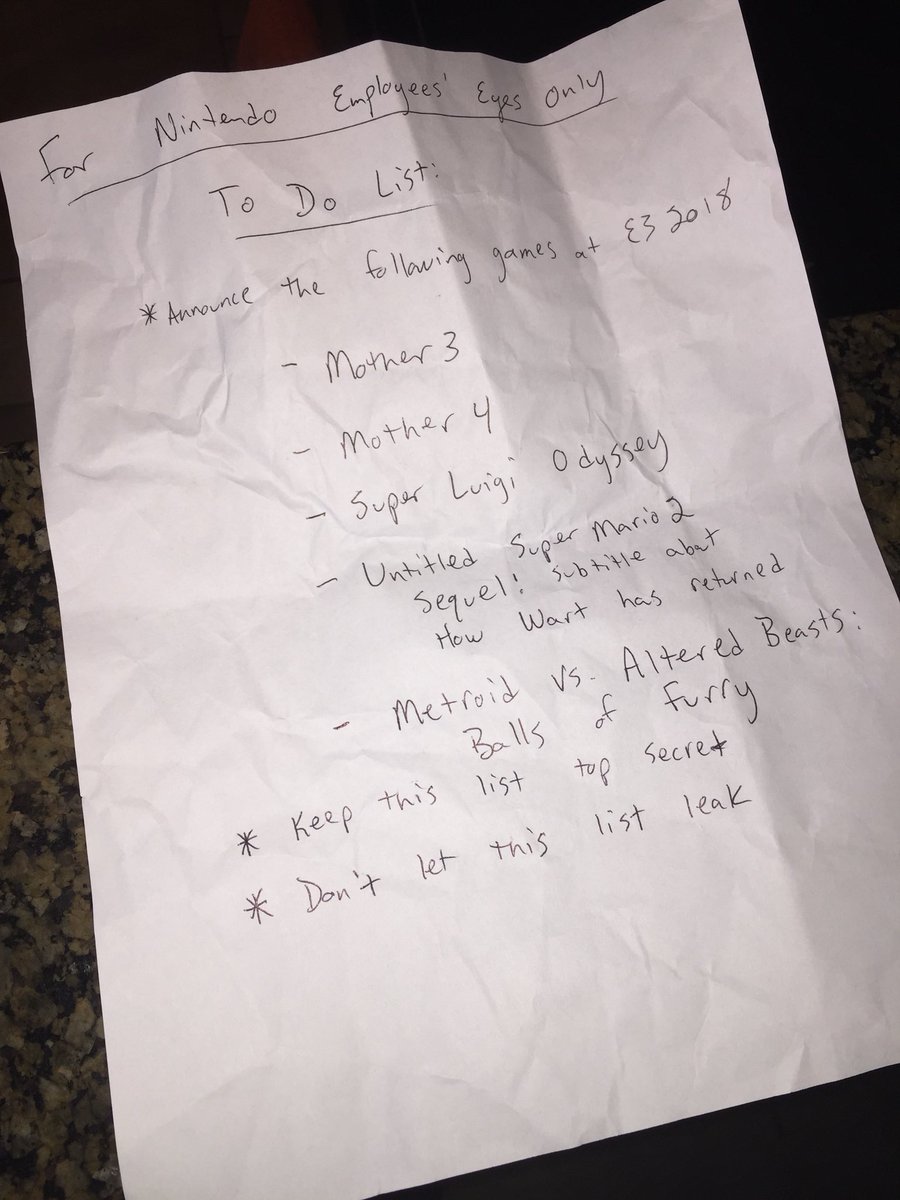 For Nintendo Employees' Eyes Only
To Do List:
* Announce the following games at E3 2018
- Mother 3
- Mother 4
- Super Luigi Odyssey
- Untitled Super Mario 2
Sequel: subtitle abat
How Wart has returned
- Metroid vs. Altered Beasts:
Balls of Furry
* Keep this list top secret
* Don't let this list leak